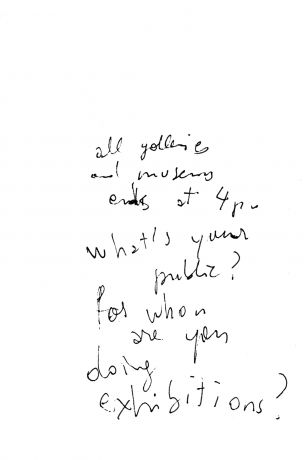 all galleries
and museums
ends at 4p.
what's your
public?
for whom
are you
doing
exhibitions?